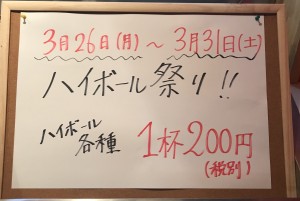 3月26日(月)～3月31日(土)
ハイボール祭り!!
ハイボール
各種
1杯200円
(税別)